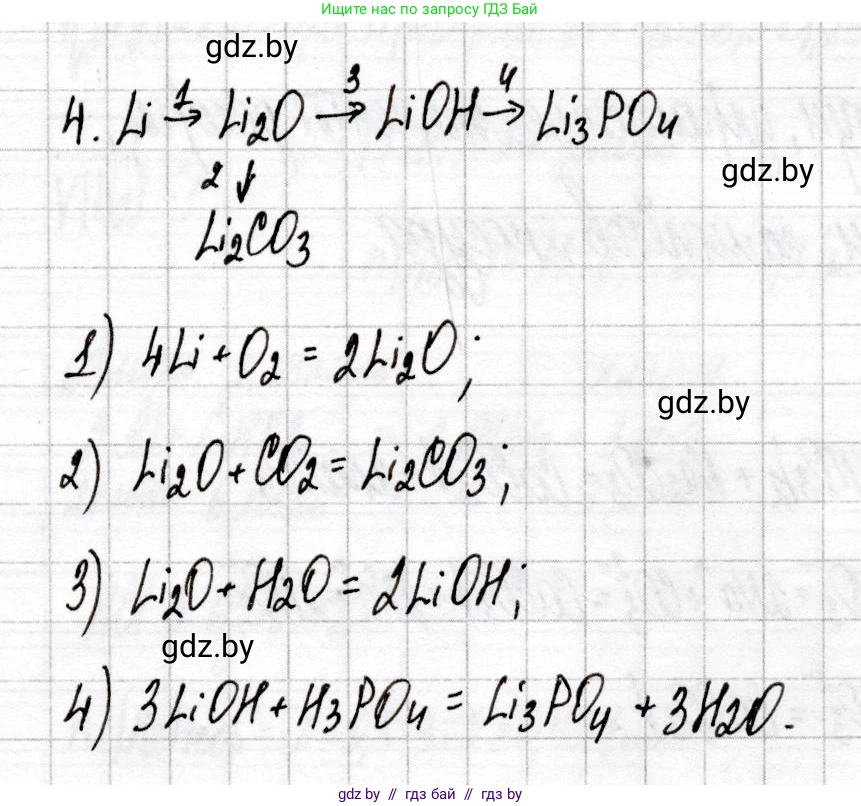 Ищите нас по запросу ГДЗ Бай
gdz.by
4. Li →1 Li₂O →3 LiOH →4 Li₃PO₄
gdz.by
2 ↓
Li₂CO₃
1) 4Li + O₂ = 2Li₂O;
gdz.by
2) Li₂O + CO₂ = Li₂CO₃;
3) Li₂O + H₂O = 2LiOH;
gdz.by
4) 3LiOH + H₃PO₄ = Li₃PO₄ + 3H₂O.
gdz by // гдз бай // gdz by